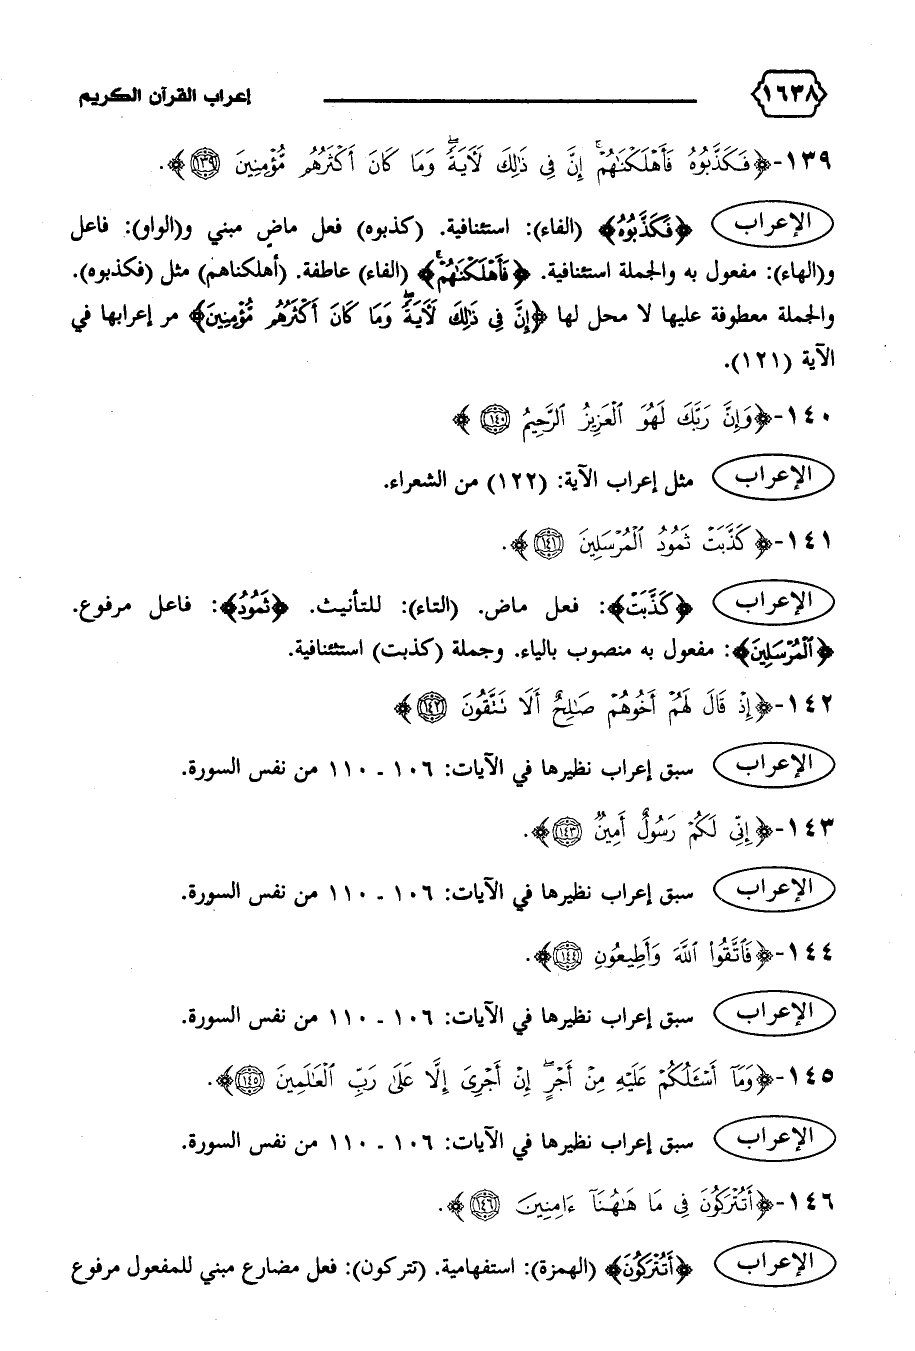 ١٦٣٨ إعراب القرآن الكريم
١٣٩-﴿فَكَذَّبُوهُ فَأَهْلَكْنَٰهُمْ ۚ إِنَّ فِى ذَٰلِكَ لَـَٔايَةً ۖ وَمَا كَانَ أَكْثَرُهُم مُّؤْمِنِينَ ١٣٩﴾.
الإعراب ﴿فَكَذَّبُوهُ﴾ (الفاء): استئنافية. (كذبوه) فعل ماضٍ مبني و(الواو): فاعل
و(الهاء): مفعول به والجملة استئنافية. ﴿فَأَهْلَكْنَٰهُمْ ۚ﴾ (الفاء) عاطفة. (أهلكناهم) مثل (فكذبوه).
والجملة معطوفة عليها لا محل لها ﴿إِنَّ فِى ذَٰلِكَ لَـَٔايَةً ۖ وَمَا كَانَ أَكْثَرُهُم مُّؤْمِنِينَ﴾ مر إعرابها في
الآية (١٢١).
١٤٠-﴿وَإِنَّ رَبَّكَ لَهُوَ ٱلْعَزِيزُ ٱلرَّحِيمُ ١٤٠﴾
الإعراب مثل إعراب الآية: (١٢٢) من الشعراء.
١٤١-﴿كَذَّبَتْ ثَمُودُ ٱلْمُرْسَلِينَ ١٤١﴾.
الإعراب ﴿كَذَّبَتْ﴾: فعل ماض. (التاء): للتأنيث. ﴿ثَمُودُ﴾: فاعل مرفوع.
﴿ٱلْمُرْسَلِينَ﴾: مفعول به منصوب بالياء. وجملة (كذبت) استئنافية.
١٤٢-﴿إِذْ قَالَ لَهُمْ أَخُوهُمْ صَٰلِحٌ أَلَا تَتَّقُونَ ١٤٢﴾
الإعراب سبق إعراب نظيرها في الآيات: ١٠٦ - ١١٠ من نفس السورة.
١٤٣-﴿إِنِّى لَكُمْ رَسُولٌ أَمِينٌ ١٤٣﴾.
الإعراب سبق إعراب نظيرها في الآيات: ١٠٦ - ١١٠ من نفس السورة.
١٤٤-﴿فَٱتَّقُوا۟ ٱللَّهَ وَأَطِيعُونِ ١٤٤﴾.
الإعراب سبق إعراب نظيرها في الآيات: ١٠٦ - ١١٠ من نفس السورة.
١٤٥-﴿وَمَآ أَسْـَٔلُكُمْ عَلَيْهِ مِنْ أَجْرٍ ۖ إِنْ أَجْرِىَ إِلَّا عَلَىٰ رَبِّ ٱلْعَٰلَمِينَ ١٤٥﴾.
الإعراب سبق إعراب نظيرها في الآيات: ١٠٦ - ١١٠ من نفس السورة.
١٤٦-﴿أَتُتْرَكُونَ فِى مَا هَٰهُنَآ ءَامِنِينَ ١٤٦﴾.
الإعراب ﴿أَتُتْرَكُونَ﴾ (الهمزة): استفهامية. (تتركون): فعل مضارع مبني للمفعول مرفوع